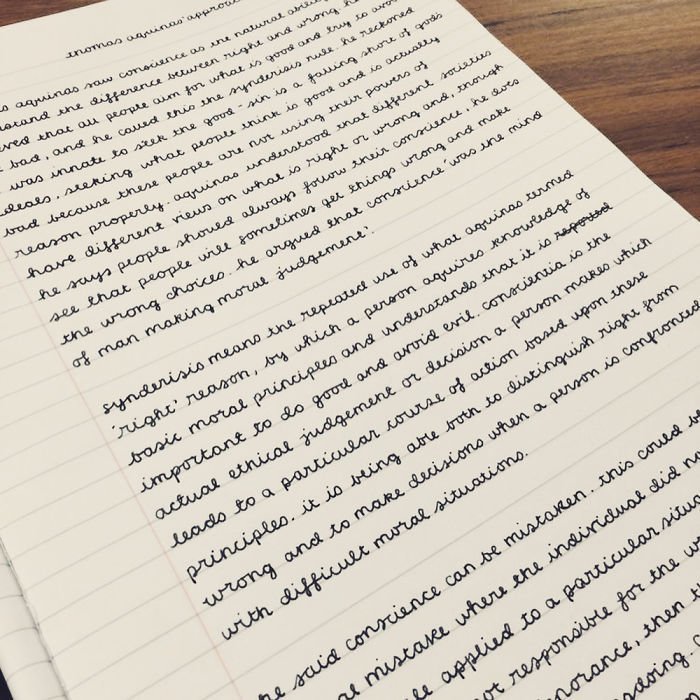 thomas aquinas' approa
aquinas saw conscience as the natural
the difference between right and wrong. he
that all people aim for what is good and try to avoi
bad, and he called this the synderisis rule. he reckoned
was innate to seek the good - sin is a falling short of gods
ideals, seeking what people think is good and is actually
bad because these people are not using their powers of
reason properly. aquinas understood that different societies
have different views on what is right or wrong and, though
he says people should always follow their conscience, he does
see that people will sometimes get things wrong and make
the wrong choices. he argued that conscience 'was the mind
of man making moral judgement'.
synderisis means the repeated use of what aquinas termed
'right' reason, by which a person aquires knowledge of
basic moral principles and understands that it is
important to do good and avoid evil. conscientia is the
actual ethical judgement or decision a person makes which
leads to a particular course of action based upon these
principles. it is being able both to distinguish right from
wrong and to make decisions when a person is confronted
with difficult moral situations.
he said conscience can be mistaken. this could b
al mistake where the individual did n
applied to a particular situa
not responsible for the w
ignorance, then t
doing.